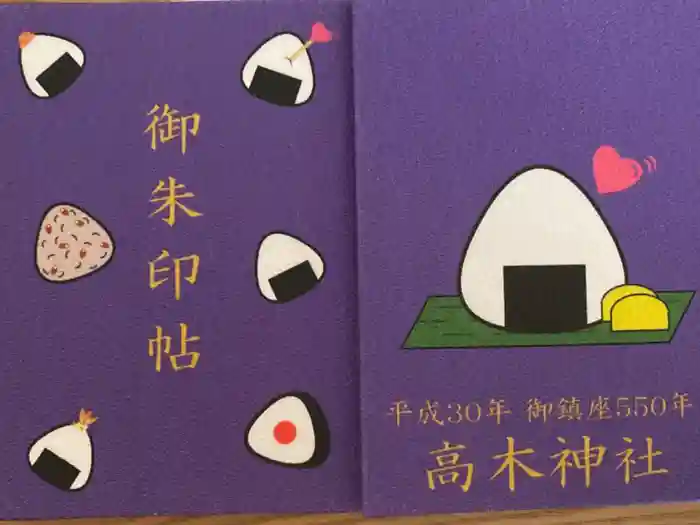 御朱印帖
平成30年 御鎮座550年
高木神社